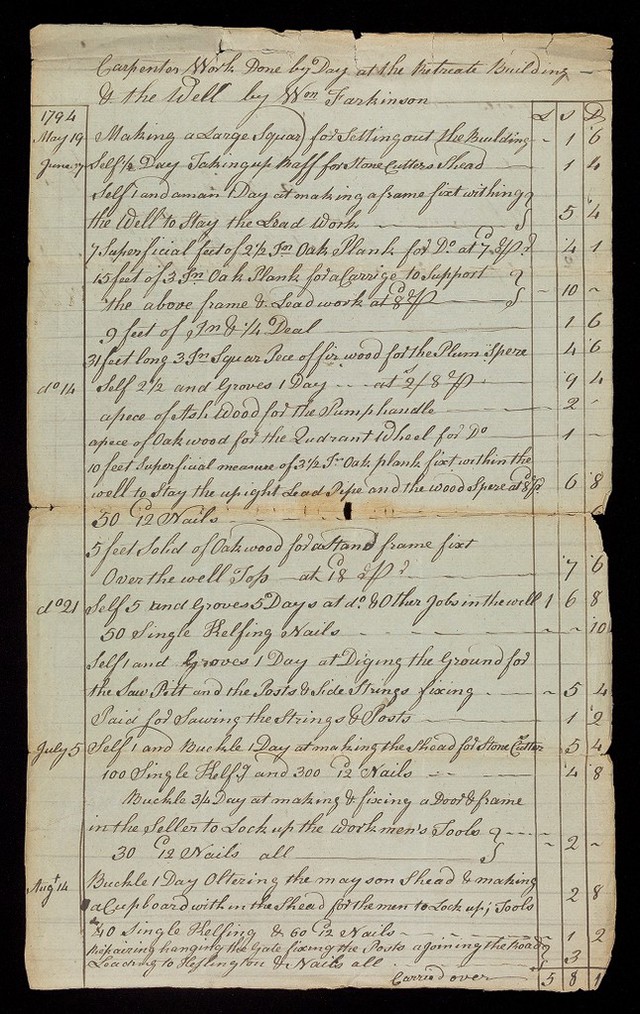 Carpenter Work Done by Day at the Retreate Building
& the Well by Wm Parkinson
1794 L s D
May 19 Making a Large Squar for Setting out the Building - 1 6
June 7 Self 1/2 Day Taking up Raff for Stone Cutters Shead 1 4
Self 1 and a man 1 Day at making a frame fixt within
the Well to Stay the Lead Work 5 4
7 Superficial feet of 2 1/2 In Oak Plank for Do at 7d 4 1
15 feet of 3 In Oak Plank for a Carrige to Support
the above frame & Lead work at 8d 10 -
9 feet of In & 1/4 Deal 1 6
31 feet long 3 In Squar Pece of fir wood for the Plum Spere 4 6
do 14 Self 2 1/2 and Groves 1 Day at 2/8 9 4
a pece of Ash Wood for the Pumphandle 2 -
a pece of Oak wood for the Qudrant Wheel for Do 1 -
10 feet Superficial measure of 3 1/2 In Oak plank fixt within the
well to Stay the upright Lead Pipe and the wood Spere at 8d 6 8
50 12d Nails 6
5 feet Solid of Oak wood for a Stand frame fixt
Over the well Top at 18d 7 6
do 21 Self 5 and Groves 5 Days at do & Other Jobs in the well 1 6 8
50 Single Helfing Nails - 10
Self 1 and Groves 1 Day at Diging the Ground for
the Saw Pitt and the Posts & Side Strings fixing - 5 4
Paid for Sawing the Strings & Posts 1 2
July 5 Self 1 and Buckle 1 Day at making the Shead for Stone Cutter 5 4
100 Single Helfg and 300 12d Nails 4 8
Buckle 3/4 Day at making & fixing a Door & frame
in the Seller to Lock up the Workmen's Tools
30 12d Nails all - 2 -
Augt 14 Buckle 1 Day Oltering the mayson Shead & making
a Cupboard within the Shead for the men to Lock up, Tools 2 8
40 Single Helfing & 60 12d Nails 1 2
Repairing hanging the Gate fixing the Posts a joining the Road
Leading to Heslington & Nails all 3
Carrid over 5 8 1